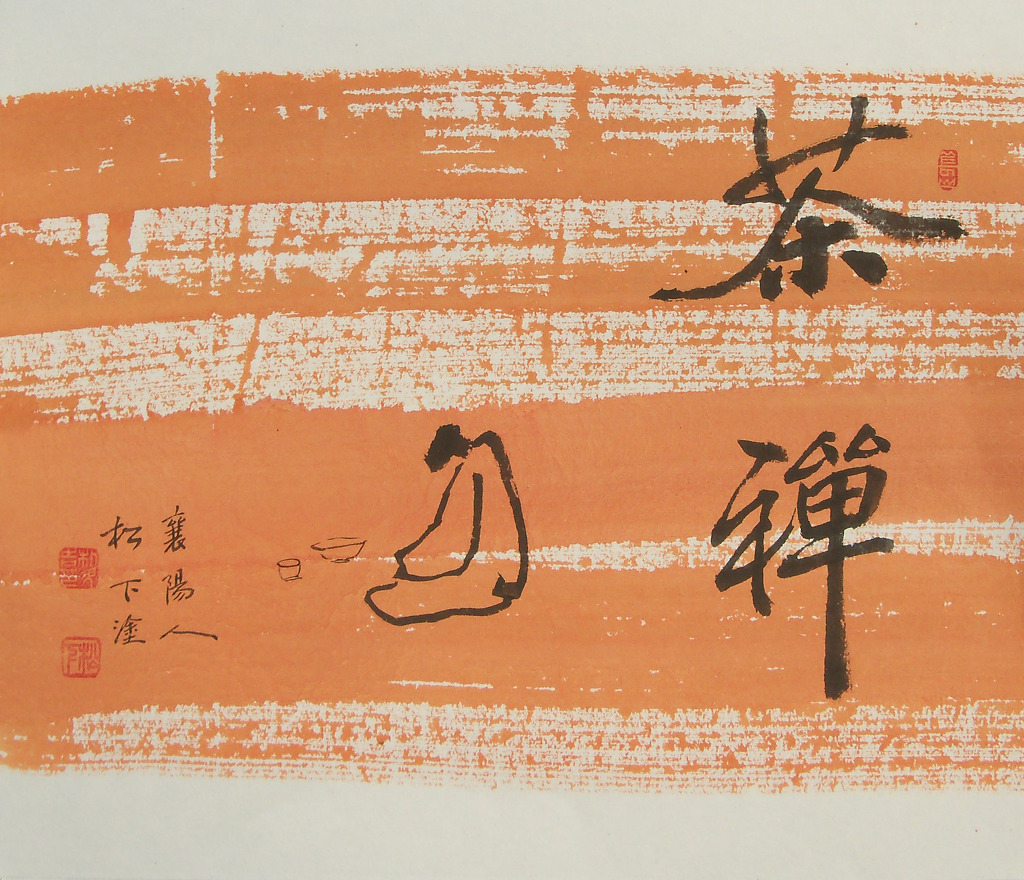 茶禪
襄陽人
松下塗